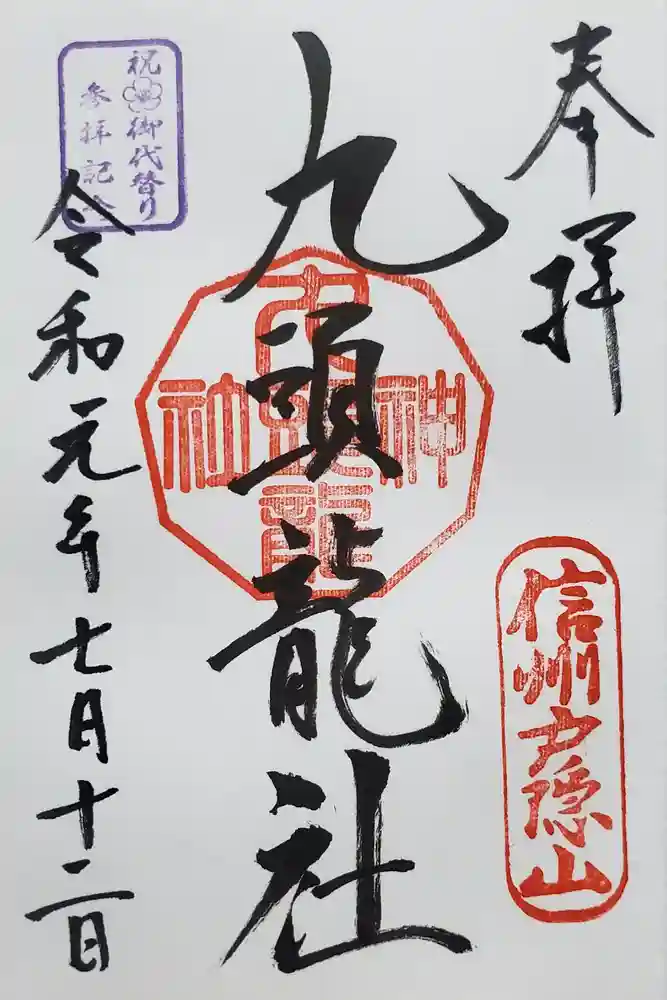 奉拝
信州戸隠山
九頭龍社
九頭龍
神社
祝 御代替り
参拝記念
令和元年七月十二日